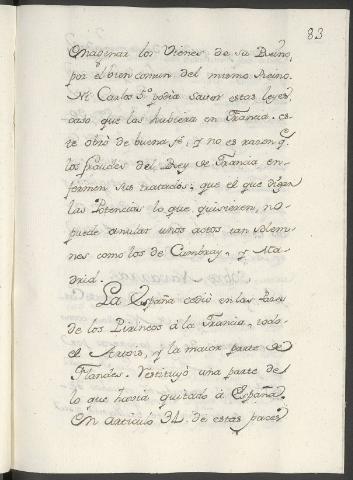 83
Enaginar los Vienes de su Reino,
por el bien comun del mismo Reino.
Ni Carlos 5.º podia saver estas leyes,
caso que las hubiera en Francia. es-
te obró de buena fé, y no es razon q.
los fraudes del Rey de Francia en-
fermen sus tratados; que el que digan
las Potencias lo que quisieren, no
puede anular unos actos tan solem-
nes como los de Cambray, y Ma-
drid.
La España cedió en las Pazes
de los Pirineos á la Francia, todo
el Artois, y la maior parte de
Flandes. Restituyó una parte de
lo que havia quitado á España.
En articulo 34. de estas pazes